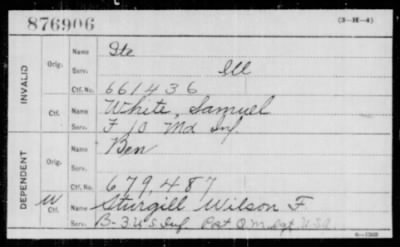 876906 (3-H-4)
INVALID
Orig. Name Ste
Serv. Ill
Ctf. No. 661436
Ctf. Name White, Samuel
Serv. F 10 Md Inf
DEPENDENT
Orig. Name Ben
Serv.
Ctf. No. 679,487
W Ctf. Name Sturgill Wilson F
Serv. B-3 U S Inf. Post Q M Sgt U S A